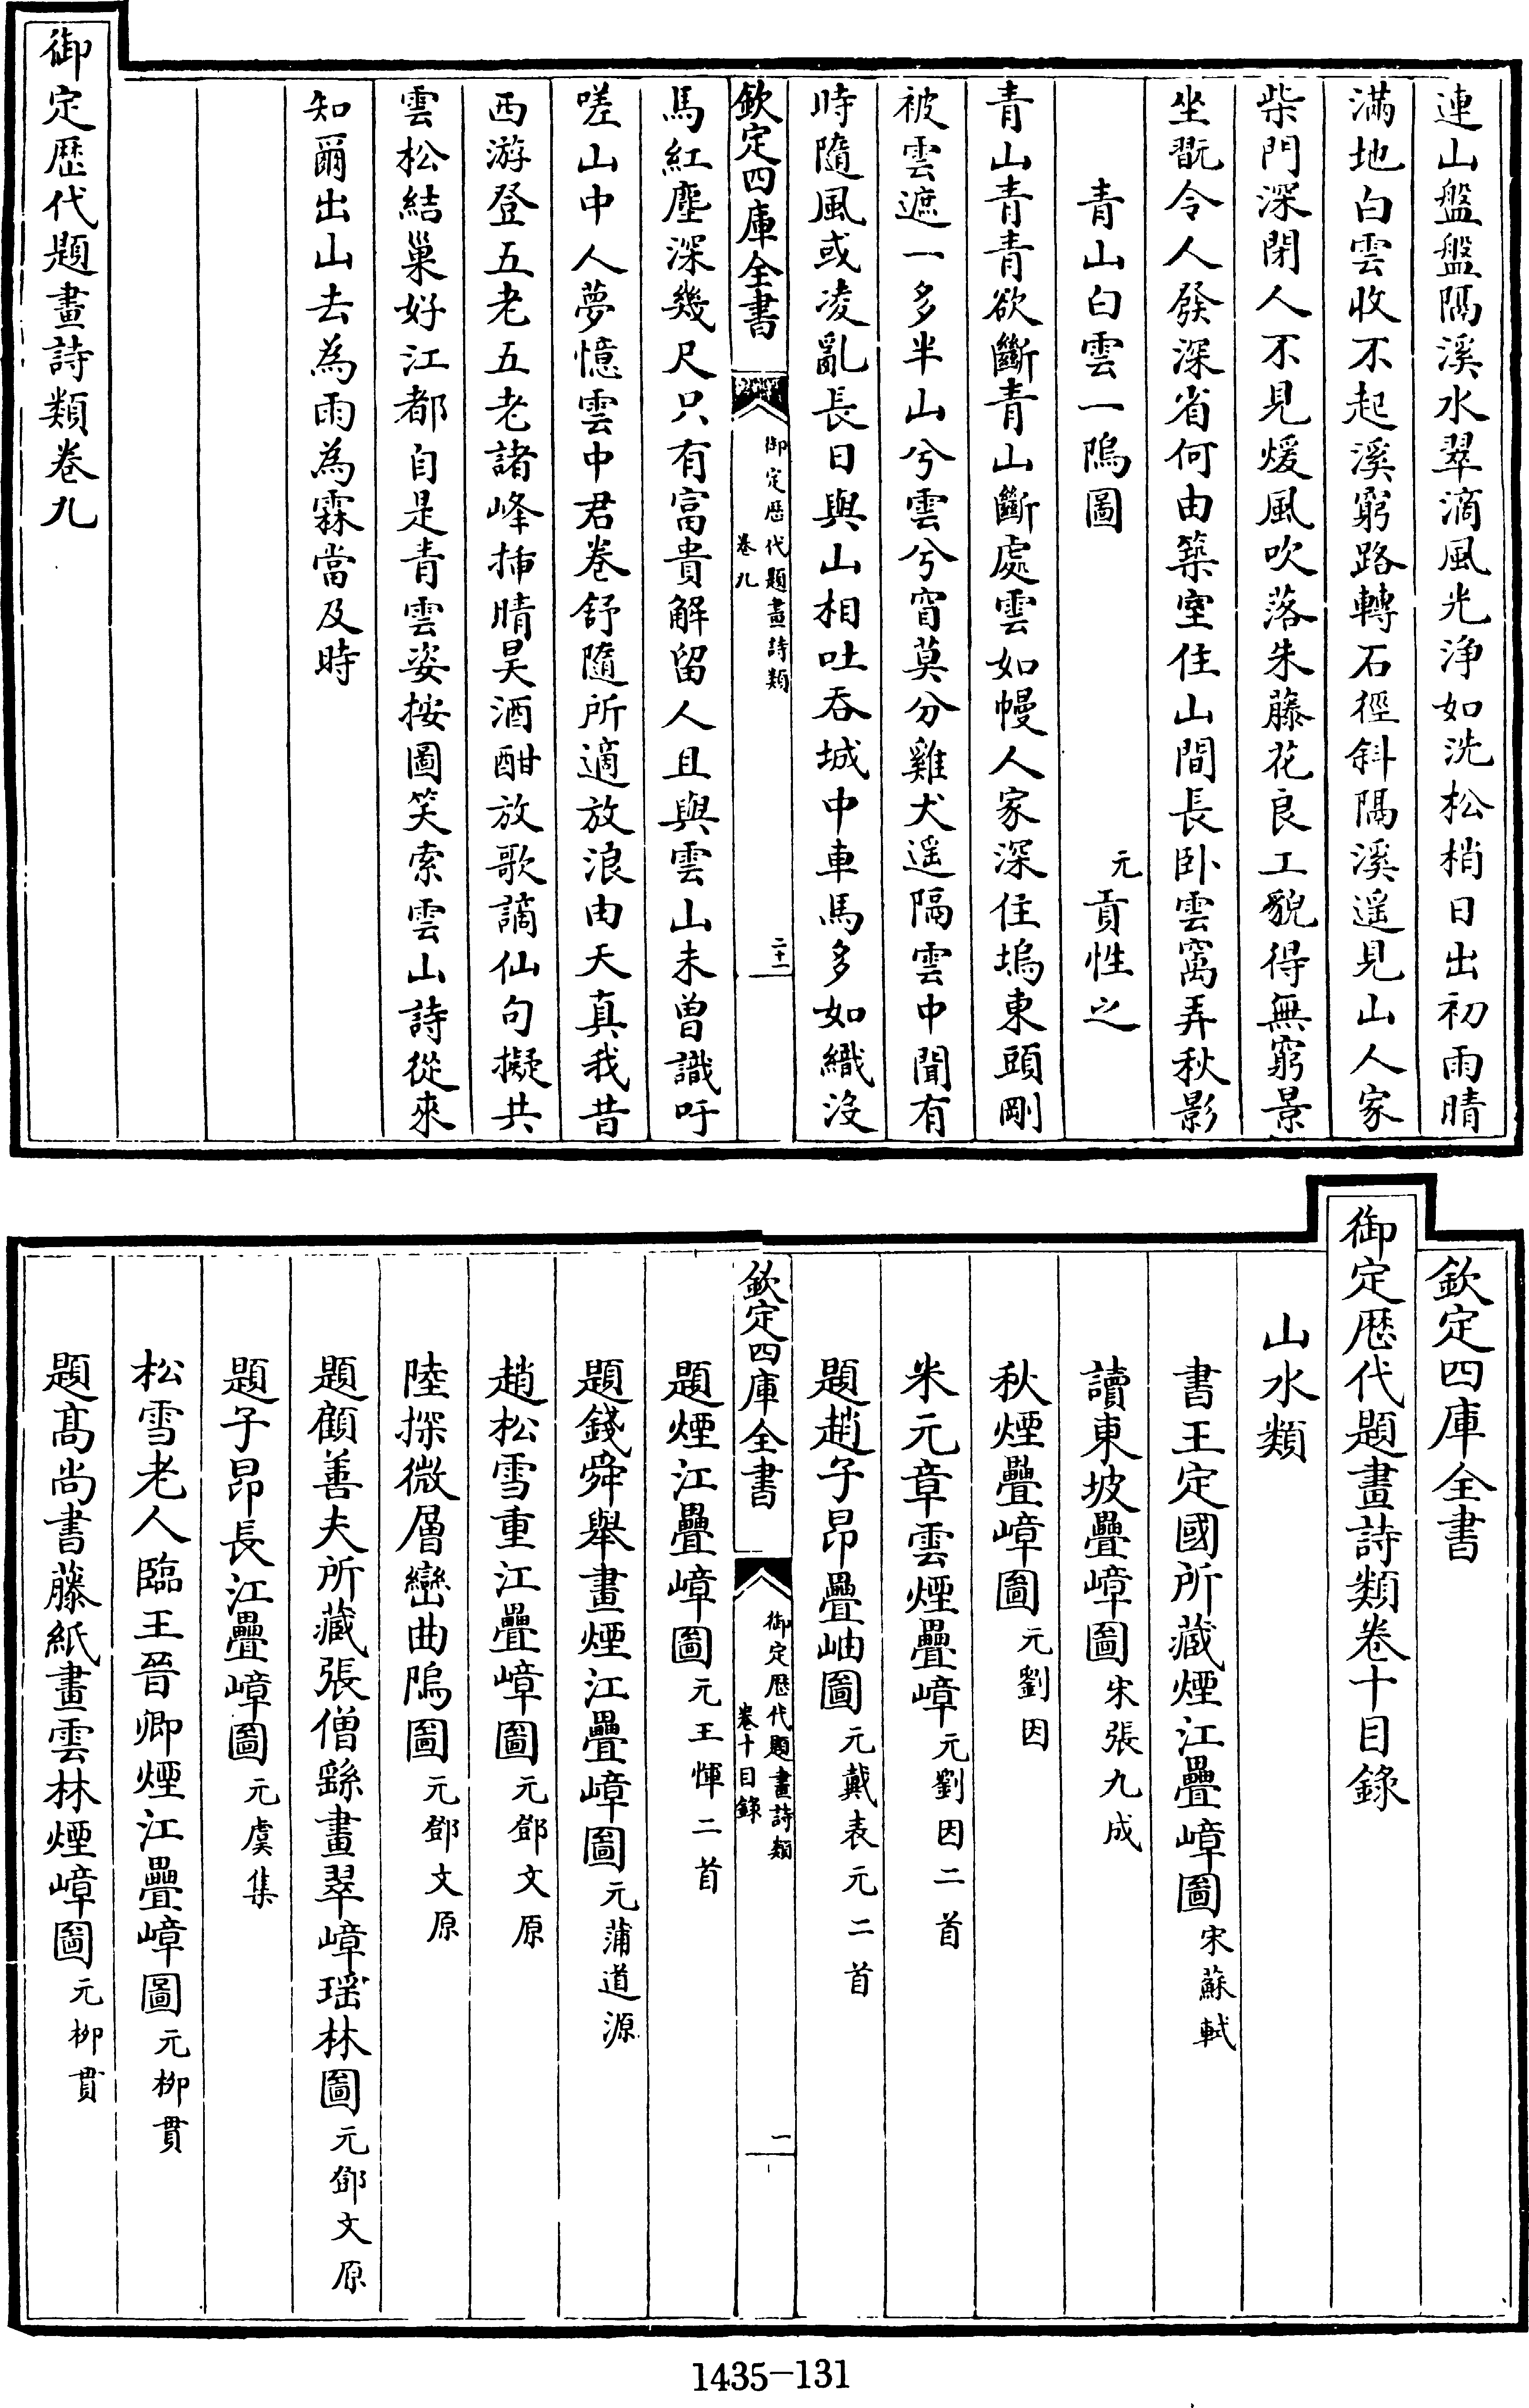 連山盤盤隔溪水翠滴風光淨如洗松梢日出初雨晴
滿地白雲收不起溪窮路轉石徑斜隔溪遥見山人家
柴門深閉人不見煖風吹落朱藤花良工貌得無窮景
坐翫令人發深省何由築室住山間長卧雲窩弄秋影
青山白雲一隖圖
元貢性之
青山青青欲斷青山斷處雲如幔人家深住塢東頭剛
被雲遮一多半山兮雲兮窅莫分雞犬遥隔雲中聞有
時隨風或凌亂長日與山相吐吞城中車馬多如織没
欽定四庫全書
御定歷代題畫詩類
卷九
二十一
馬紅塵深幾尺只有富貴解留人且與雲山未曾識吁
嗟山中人夢憶雲中君卷舒隨所適放浪由天真我昔
西游登五老五老諸峰插晴昊酒酣放歌謫仙句擬共
雲松結巢好江都自是青雲姿按圖笑索雲山詩從來
知爾出山去為雨為霖當及時
御定歷代題畫詩類卷九
欽定四庫全書
御定歷代題畫詩類卷十目錄
山水類
書王定國所藏煙江疊嶂圖宋蘇軾
讀東坡疊嶂圖宋張九成
秋煙疊嶂圖元劉因
米元章雲煙疊嶂元劉因二首
題趙子昂疊岫圖元戴表元二首
欽定四庫全書
御定歷代題畫詩類
卷十目錄
一
題煙江疊嶂圖元王惲二首
題錢舜舉畫煙江疊嶂圖元蒲道源
趙松雪重江疊嶂圖元鄧文原
陸探微層巒曲隖圖元鄧文原
題顧善夫所藏張僧繇畫翠嶂瑶林圖元鄧文原
題子昂長江疊嶂圖元虞集
松雪老人臨王晉卿煙江疊嶂圖元栁貫
題髙尚書藤紙畫雲林煙嶂圖元栁貫
1435-131